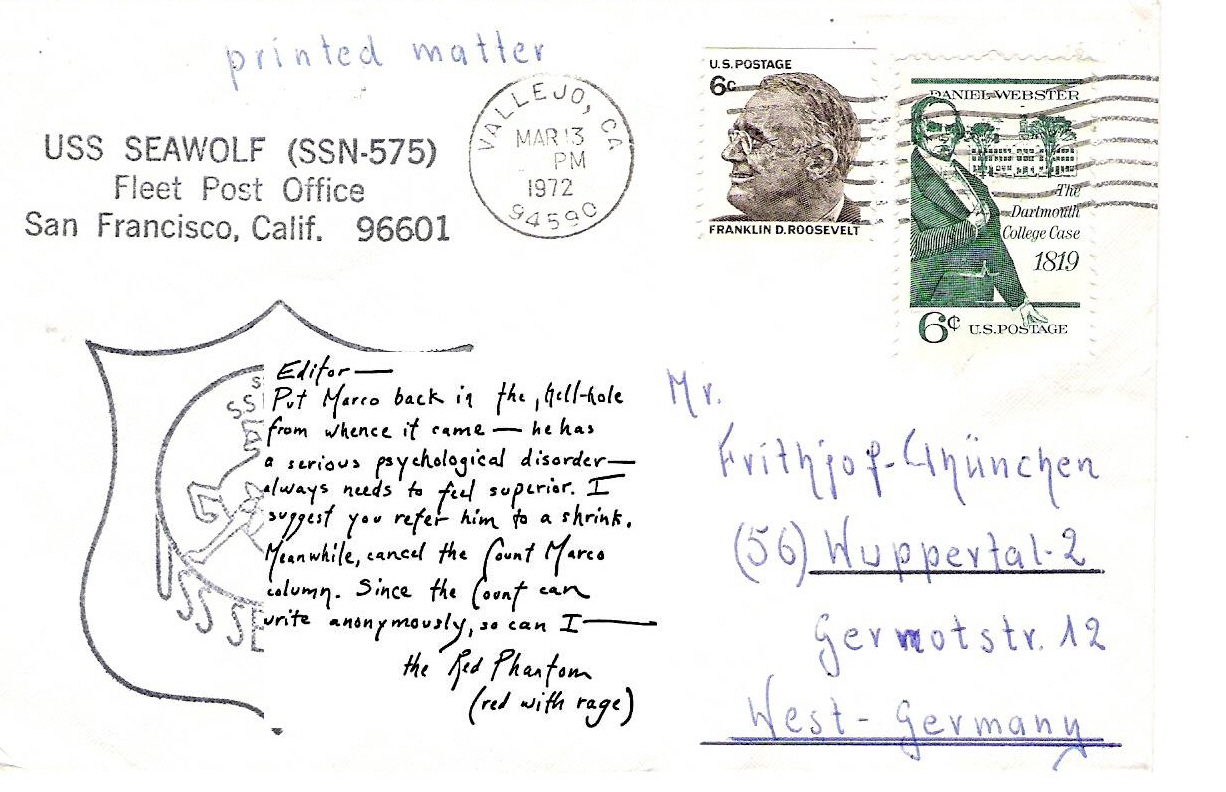 printed matter
USS SEAWOLF (SSN-575)
Fleet Post Office
San Francisco, Calif. 96601
VALLEJO, CA
MAR 13
PM
1972
94590
U.S. POSTAGE
6c
FRANKLIN D. ROOSEVELT
DANIEL WEBSTER
The
Dartmouth
College Case
1819
6c U.S. POSTAGE
SS
USS SE
Editor—
Put Marco back in the hell-hole
from whence it came — he has
a serious psychological disorder—
always needs to feel superior. I
suggest you refer him to a shrink.
Meanwhile, cancel the Count Marco
column. Since the Count can
write anonymously, so can I—
the Red Phantom
(red with rage)
Mr.
Frithjof-München
(56) Wuppertal-2
Germotstr. 12
West-Germany